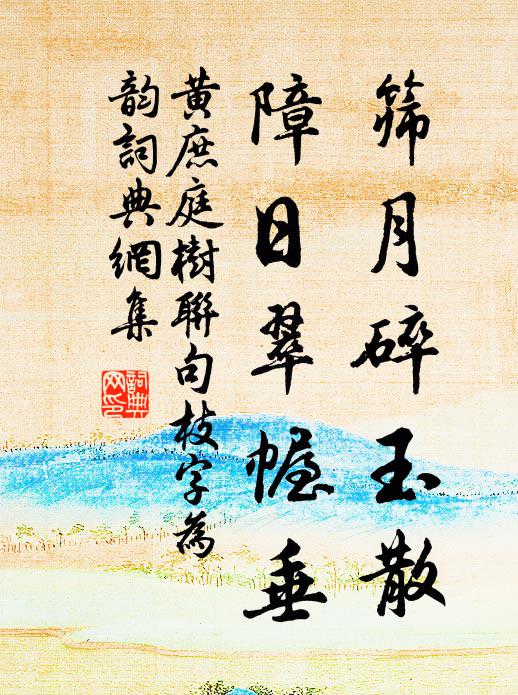 筛月碎玉散
障日翠幄垂
黃庶庭樹聯句枝字為
韵詞典網集
詞典
网印